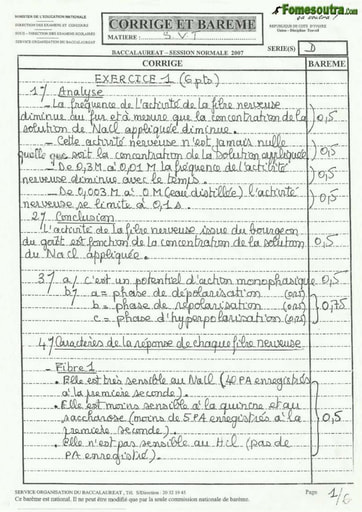 Fomesoutra.com
ça soutra !
MINISTERE DE L'EDUCATION NATIONALE
DIRECTION DES EXAMENS ET CONCOURS
SOUS - DIRECTION DES EXAMENS SCOLAIRES
SERVICE ORGANISATION DU BACCALAUREAT
CORRIGE ET BAREME
MATIERE : SVT
REPUBLIQUE DE COTE D'IVOIRE
Union - Discipline - Travail
SERIE(S) D
BACCALAUREAT – SESSION NORMALE 2007
CORRIGE BAREME
EXERCICE 1 (6 pts)
1°/ Analyse
- La fréquence de l'activité de la fibre nerveuse
diminue au fur et à mesure que la concentration de la
solution de NaCl appliquée diminue. 0,5
- Cette activité nerveuse n'est jamais nulle
quelle que soit la concentration de la solution appliquée 0,5
- De 0,3M à 0,01 M la fréquence de l'activité
nerveuse diminue avec le temps. 0,5
- De 0,003 M à 0 M (eau distillée) l'activité
nerveuse se limite à 0,1 s. 0,5
2°/ Conclusion
L'activité de la fibre nerveuse issue du bourgeon
du goût est fonction de la concentration de la solution 0,5
du NaCl appliquée.
3°/ a/ c'est un potentiel d'action monophasique 0,5
b/ a = phase de dépolarisation
b = phase de repolarisation 0,75
c = phase d'hyperpolarisation
4°/ Caractères de la réponse de chaque fibre nerveuse
- Fibre 1
• Elle est très sensible au NaCl (40 PA enregistrés
à la première seconde).
• Elle est moins sensible à la quinine et au
saccharose (moins de 5 PA enregistrés à la 0,5
première seconde).
• Elle n'est pas sensible au HCl (pas de
PA enregistré).
SERVICE ORGANISATION DU BACCALAUREAT
Page 1/6
Ce barème est national. Il ne peut être modifié que par la seule commission nationale de barème.